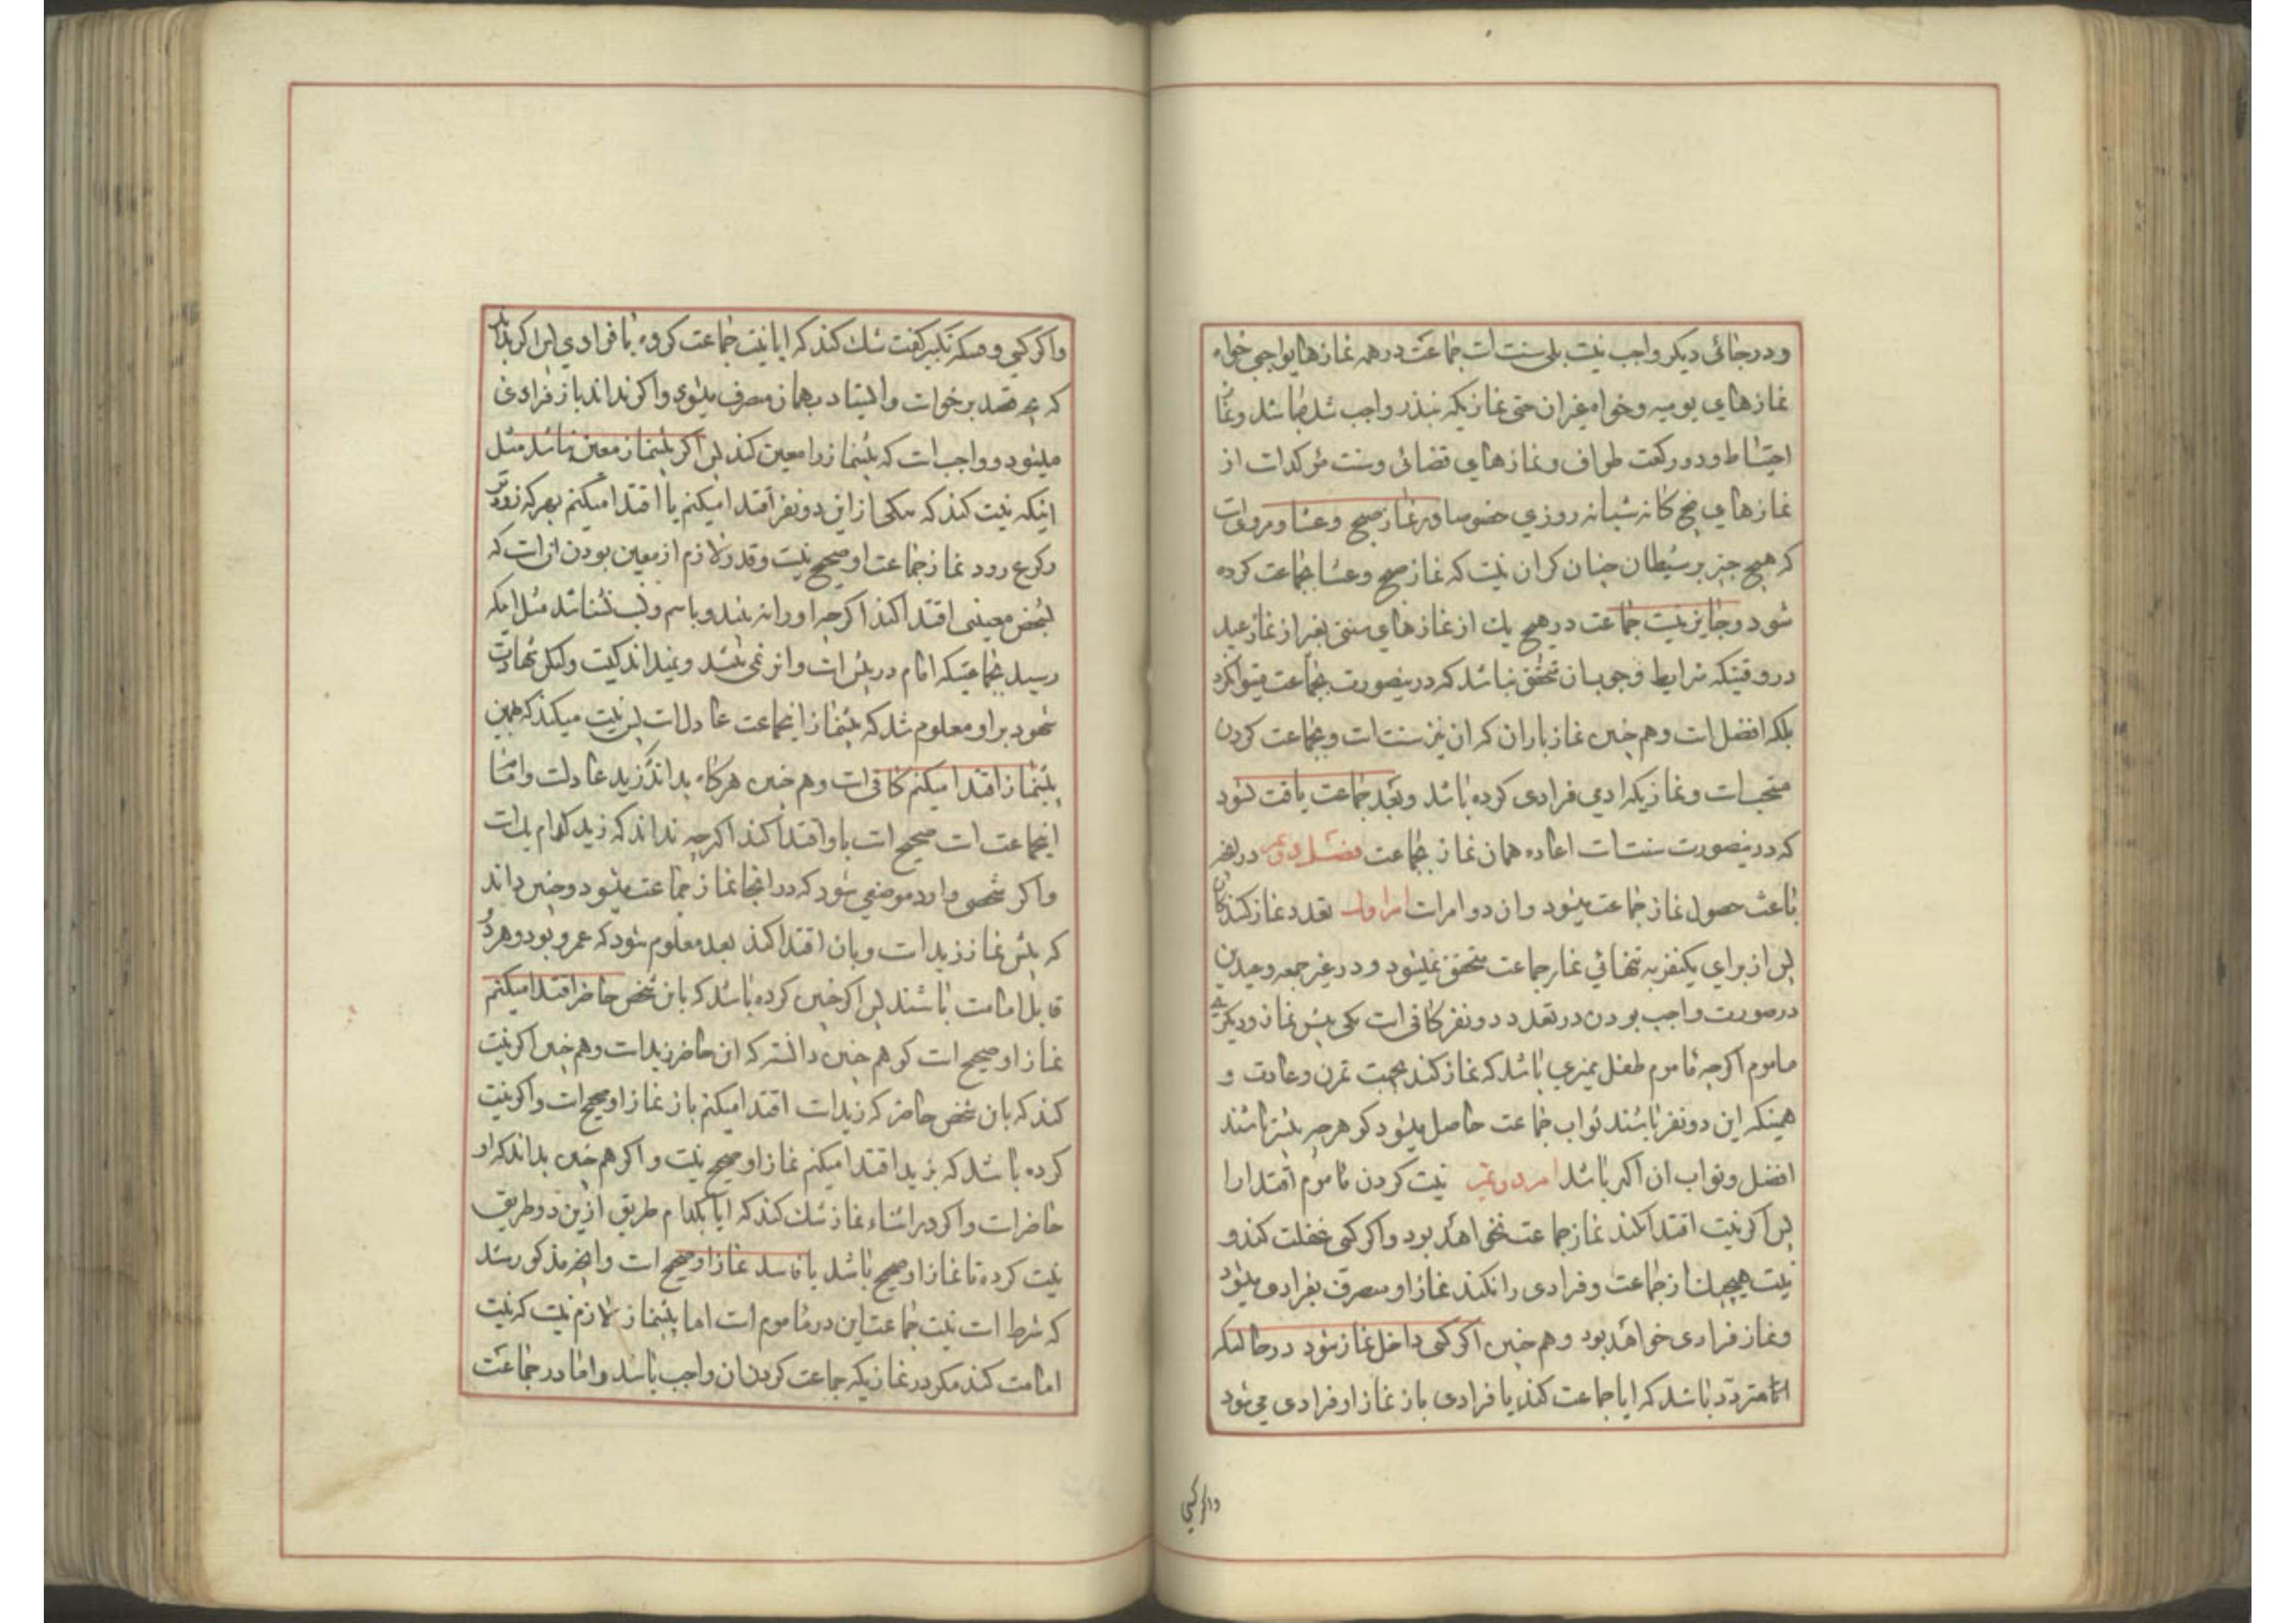 ودر جائی دیکر واجب نیست بلی سنت است جماعت در همه نمازهای واجبی خواه
نمازهای یومیه و خواه غیر ان حتی نمازیکه بنذر واجب شده باشد و نماز
احتیاط و دو رکعت طواف و نمازهای قضائی و سنت مؤکد است از
نمازهای پنج کانه شبانه روزی خصوصا در نماز صبح و عشا و مرویست
که هیچ چیز بر شیطان چنان کران نیست که نماز صبح و عشا بجماعت کرده
شود و جایز نیست جماعت در هیچ یك از نمازهای سنتی بغیر از نماز عید
در وقتیکه شرایط وجوب ان متحقق نباشد که درینصورت بجماعت میتوانکرد
بلکه افضل است و هم چنین نماز باران که ان نیز سنت است و بجماعت کردن
مستحب است و نمازیکه ادمی فرادی کرده باشد و بعد جماعت یافت شود
که درینصورت سنت است اعاده همان نماز بجماعت فصل دویم در انچه
باعث حصول نماز جماعت میشود و ان دو امر است امر اول تعدد نماز کنندکان
پس از برای یکنفر به تنهائی نماز جماعت متحقق نمیشود و در غیر جمعه و عیدین
در صورت واجب بودن در تعدد دو نفر کافی است یکی پیش نماز و دیکری
ماموم اکرچه ماموم طفل ممیزی باشد که نماز کند بجهت تمرن و عادت و
همینکه این دو نفر باشند ثواب جماعت حاصل میشود کو هرچه بیشتر باشند
افضل و ثواب ان اکثر باشد امر دویم نیت کردن ماموم اقتدا را
پس اکر نیت اقتدا نکند نماز جماعت نخواهد بود و اکر کسی غفلت کند و
نیت هیچیك از جماعت و فرادی را نکند نماز او منصرف بفرادی میشود
و نماز فرادی خواهد بود و هم چنین اکر کسی داخل نماز شود در حالتیکه
متردد باشد که ایا جماعت کند یا فرادی باز نماز او فرادی می شود
واکر کسی
واکر کسی وقتیکه تکبیر کفت شك کند که ایا نیت جماعت کرده یا فرادی پس اکر بداند
که بچه قصد برخواست و ایستاد بهمان منصرف میشود و اکر نداند باز فرادی
میشود و واجب است که پیشنماز را معین کند پس اکر پیشنماز معین نباشد مثل
اینکه نیت کند که بیکی از این دو نفر اقتدا میکنم یا اقتدا میکنم بهر که زودتر
رکوع رود نماز جماعت او صحیح نیست و قدر لازم از معین بودن ان است که
بشخص معینی اقتدا کند اکرچه او را نه بیند و باسم و نسب نشناسد مثل اینکه
رسید بجماعتیکه امام در پیش است و او نمی بیند و نمیداند کیست ولیکن بشهادت
شهود بر او معلوم شد که پیشنماز اینجماعت عادل است پس نیت میکند که بهمین
پیشنماز اقتدا میکنم کافی است و هم چنین هرکاه بداند زید عادلست و امام
اینجماعت است صحیح است باو اقتدا کند اکرچه نداند که زید کدام یك است
واکر شخصی وارد موضعی شود که در انجا نماز جماعت میشود و چنین داند
که پیش نماز زید است و بان اقتدا کند بعد معلوم شود که عمرو بود و هر دو
قابل امامت باشند پس اکر چنین کرده باشد که باین شخص حاضر اقتدا میکنم
نماز او صحیح است کو هم چنین دانسته که ان حاضر زید است و هم چنین اکر نیت
کند که بان شخص حاضر که زید است اقتدا میکنم باز نماز او صحیح است و اکر نیت
کرده باشد که بزید اقتدا میکنم نماز او صحیح نیست و اکر هم چنین بداند که او
حاضر است و اکر در اثناء نماز شك کند که ایا بکدام طریق ازین دو طریق
نیت کرده تا نماز او صحیح باشد یا فاسد نماز او صحیح است و انچه مذکور شد
که شرط است نیت جماعت این در ماموم است اما پیشنماز لازم نیست که نیت
امامت کند مکر در نمازیکه جماعت کردن ان واجب باشد و اما در جماعت